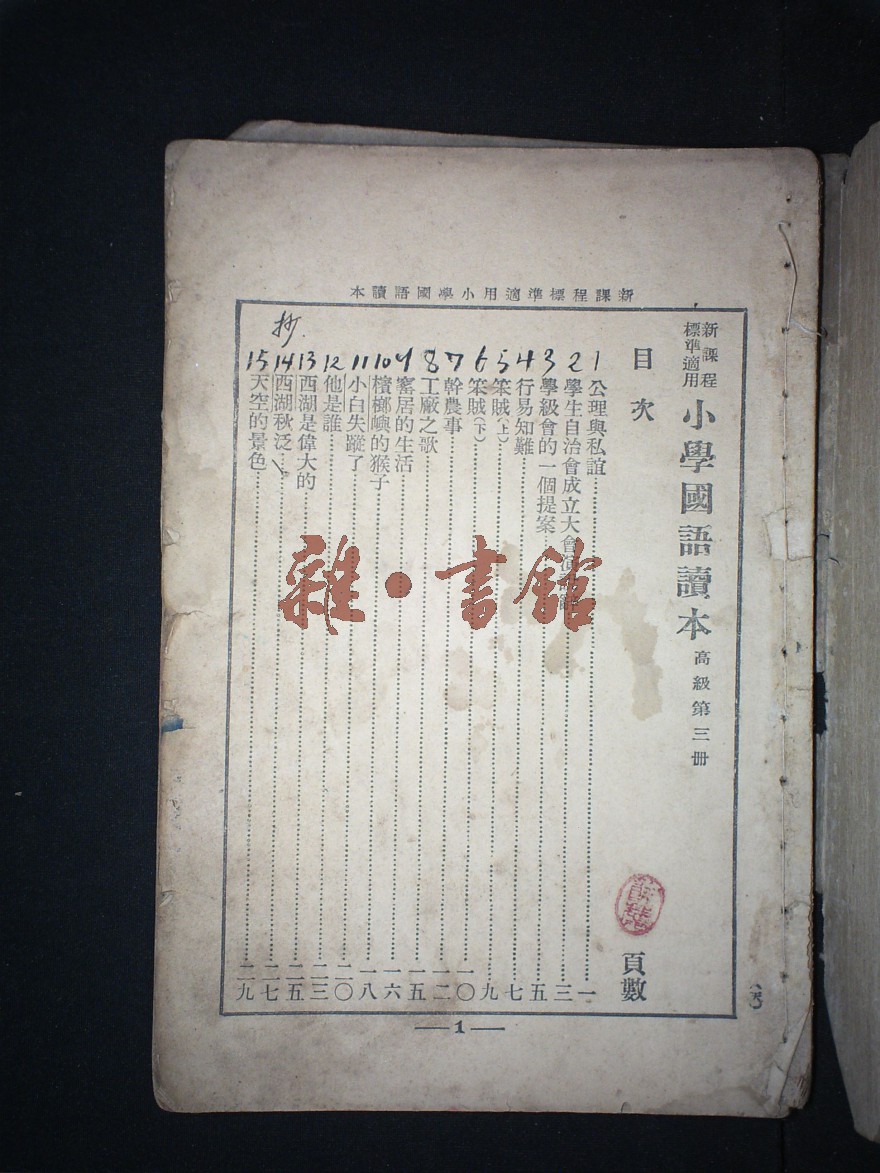 新課程標準適用小學國語讀本
新課程標準適用 小學國語讀本 高級第三冊
目次 頁數
1 公理與私誼 一
2 學生自治會成立大會演 三
3 學級會的一個提案 五
4 行易知難 七
5 笨賊(上) 九
6 笨賊(下) 一〇
7 幹農事 一二
8 工廠之歌 一五
9 窰居的生活 一六
10 檳榔嶼的猴子 一八
11 小白失蹤了 二〇
12 他是誰 二三
13 西湖是偉大的 二五
抄
14 西湖秋泛 二七
15 天空的景色 二九
—1—
雜·書館